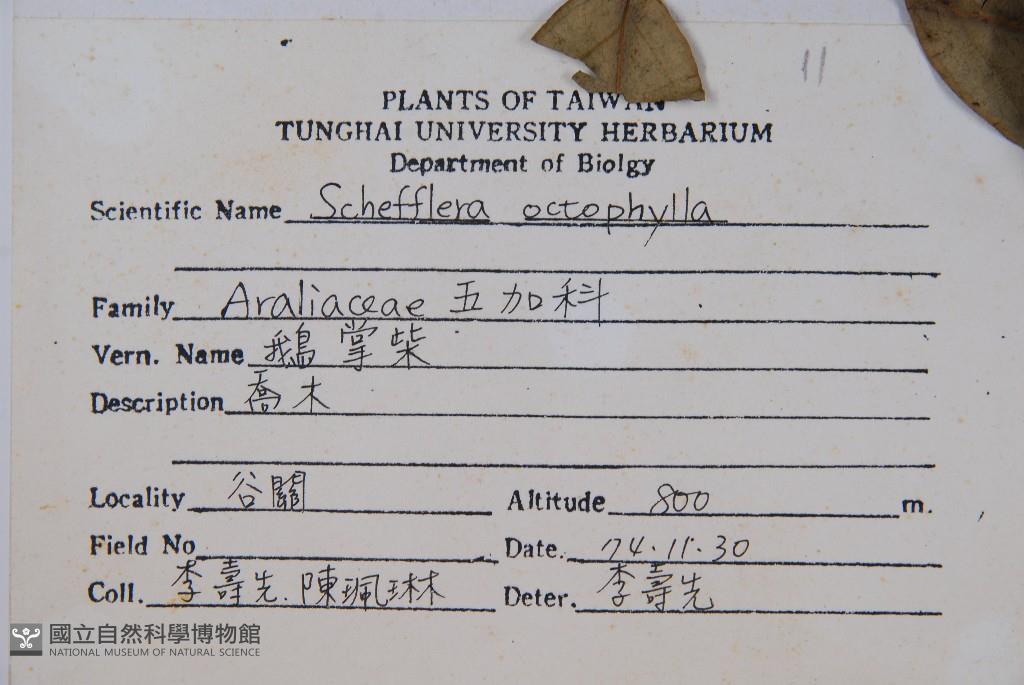 11
PLANTS OF TAIWAN
TUNGHAI UNIVERSITY HERBARIUM
Department of Biolgy
Scientific Name Schefflera octophylla
Family Araliaceae 五加科
Vern. Name 鵝掌柴
Description 喬木
Locality 谷關 Altitude 800 m.
Field No Date. 74.11.30
Coll. 李壽先.陳珮琳 Deter. 李壽先
國立自然科學博物館
NATIONAL MUSEUM OF NATURAL SCIENCE